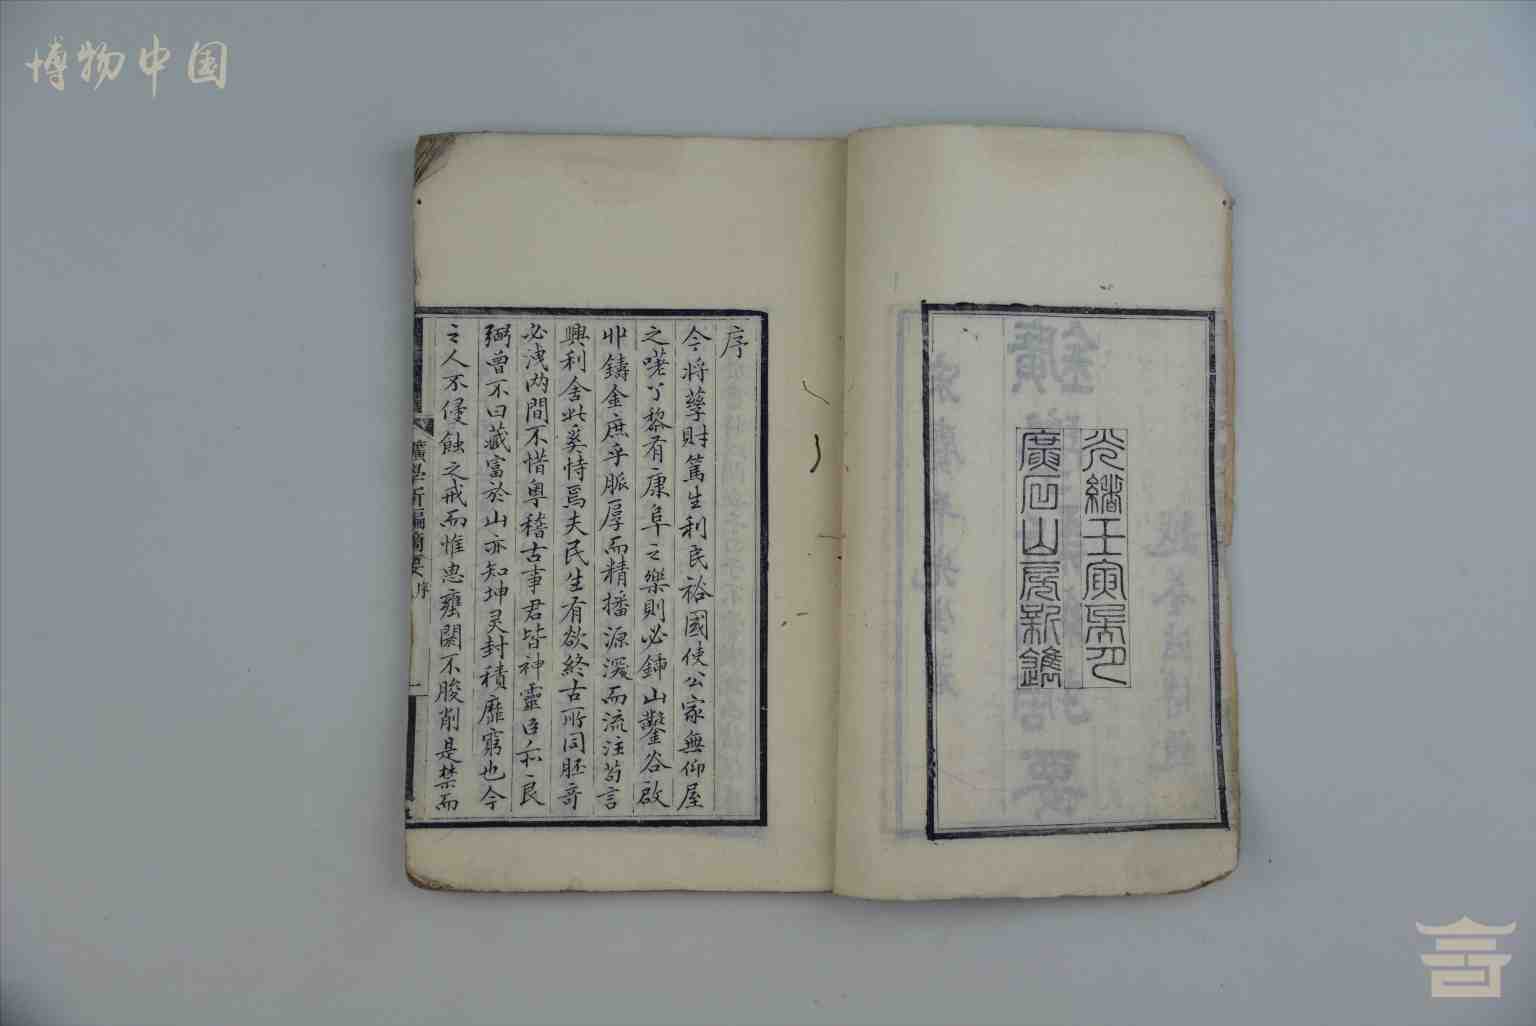 博物中国
光緒壬寅
山房新鐫
序
今將孳財篤生利民裕國使公家無仰屋
之嗟丁黎有康阜之樂則必鍾山鑿谷啟
卝鑄金庶乎脈厚而精播源濬而流注苟言
興利舍此奚恃焉夫民生有欲終古所同胚奇
必洩两間不惜粵稽古事君皆神靈臣示良
弼曾不曰藏富於山亦知坤灵封積靡窮也今
之人不侵蝕之戒而惟患壅閼不朘削是禁而
礦學新編簡要 序